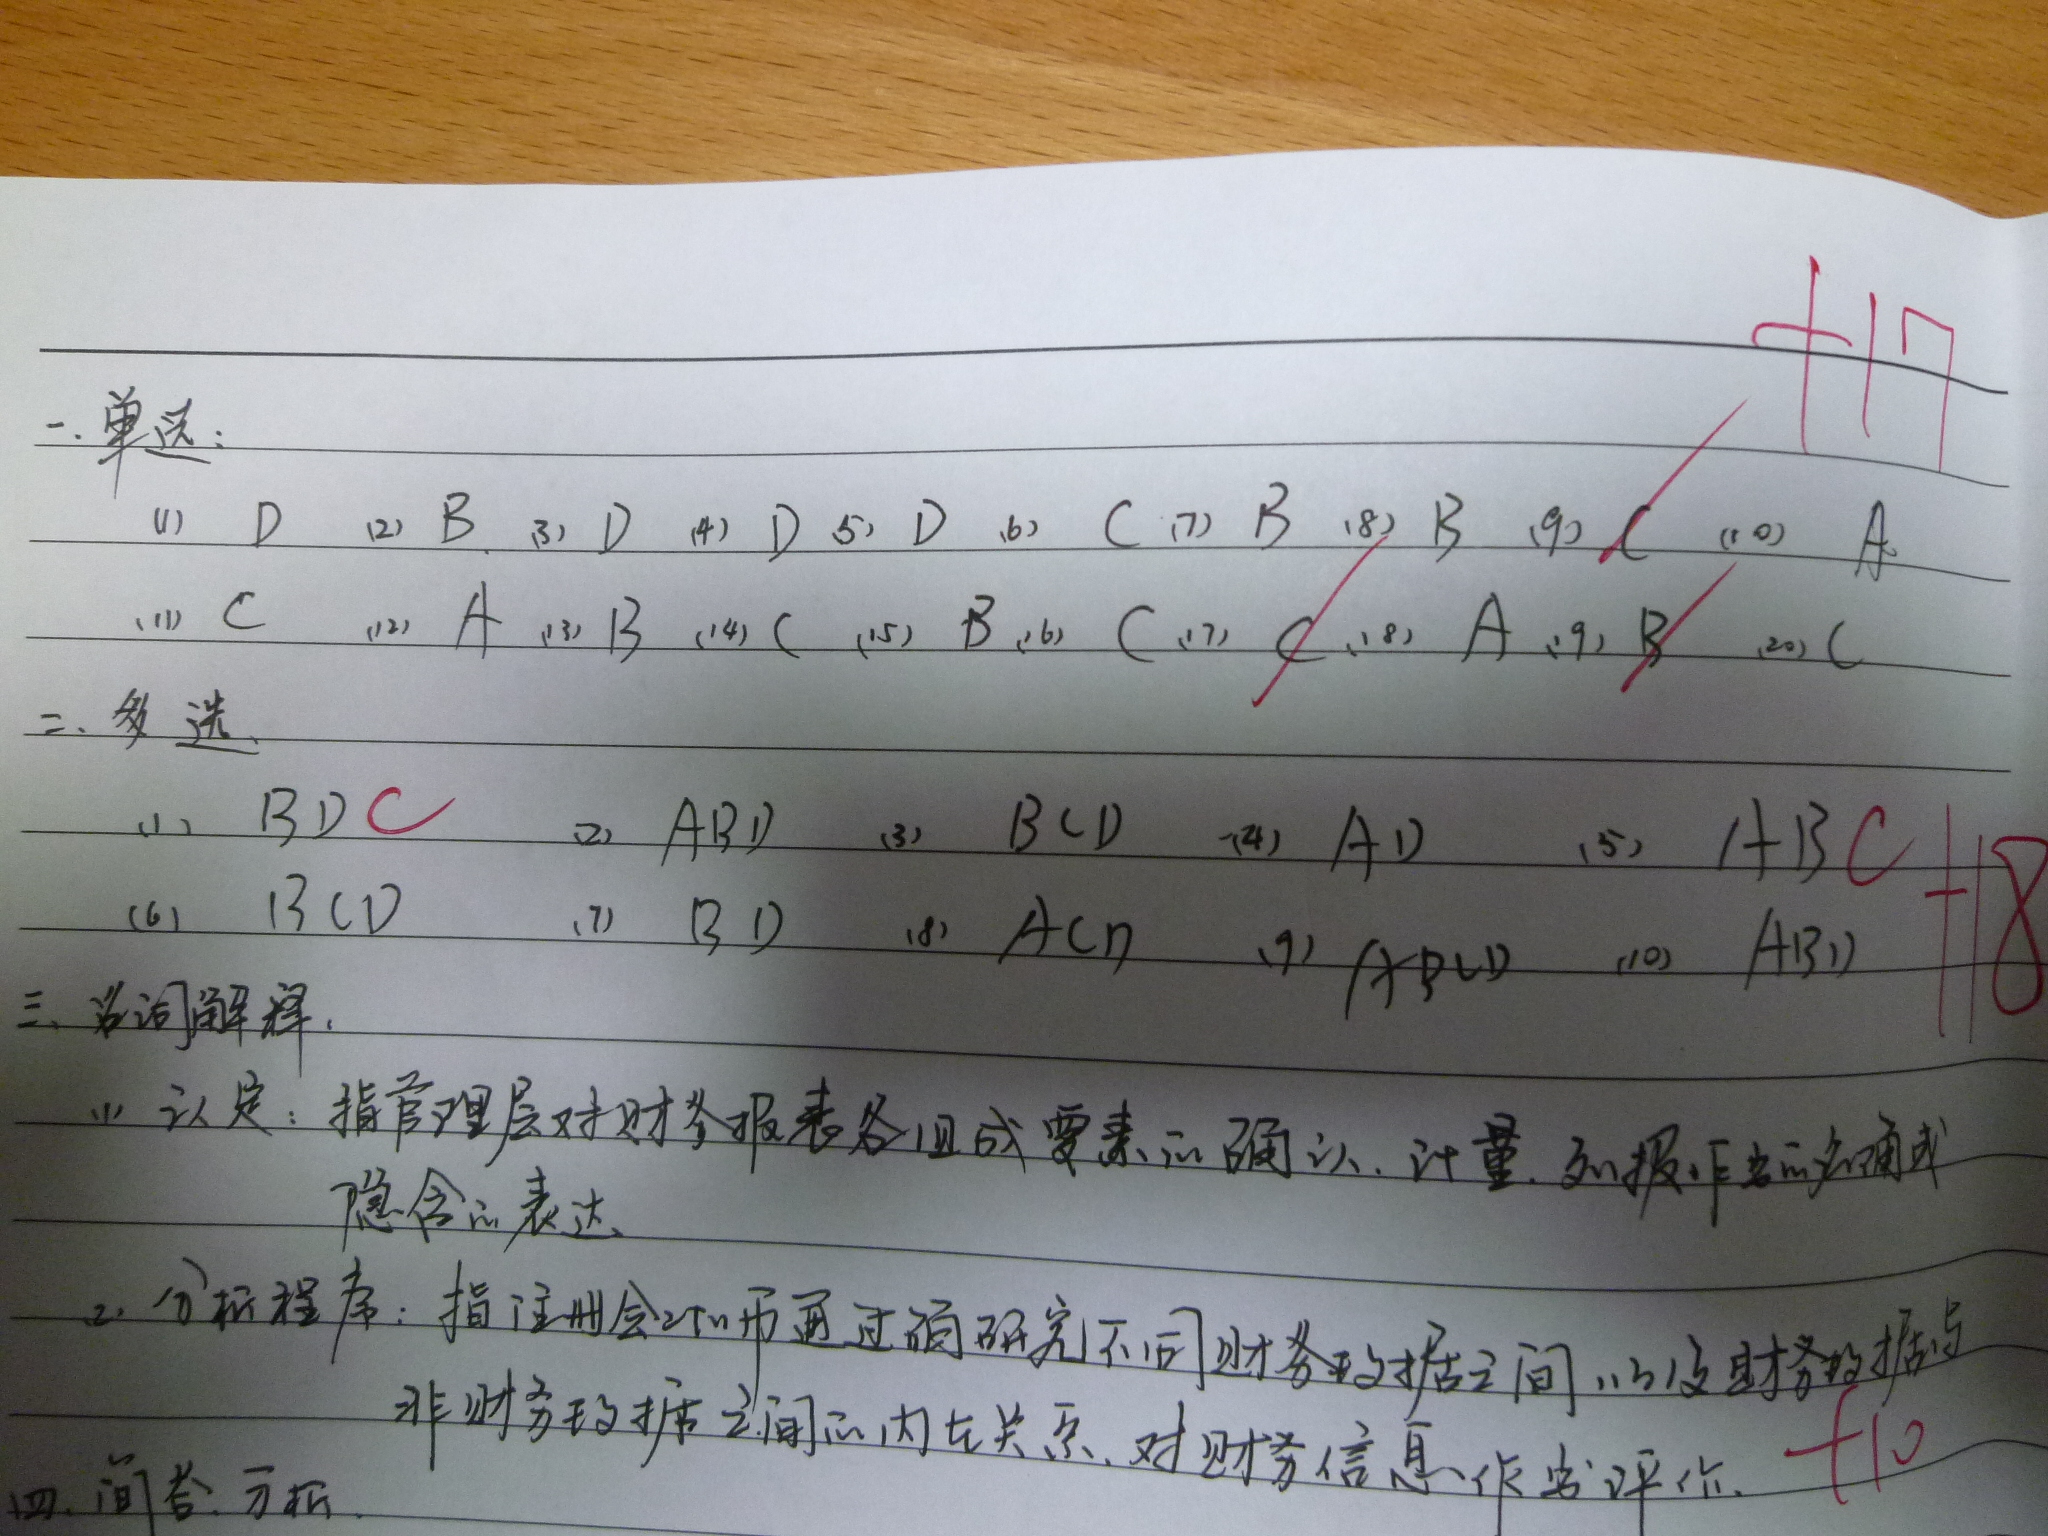 +17
一.单选:
(1) D (2) B (3) D (4) D (5) D (6) C (7) B (8) B (9) C (10) A
(11) C (12) A (13) B (14) C (15) B (16) C (17) C (18) A (19) B (20) C
二、多选、
(1) BDC (2) ABD (3) BCD (4) AD (5) ABC +18
(6) BCD (7) BD (8) ACD (9) ABCD (10) ABD
三、名词解释.
(1) 认定: 指管理层对财务报表各组成要素的确认、计量、列报作出的明确或
隐含的表达
2. 分析程序: 指注册会计师通过研究不同财务数据之间以及财务数据与
非财务数据之间的内在关系、对财务信息作出评价. +10
四.简答.分析.